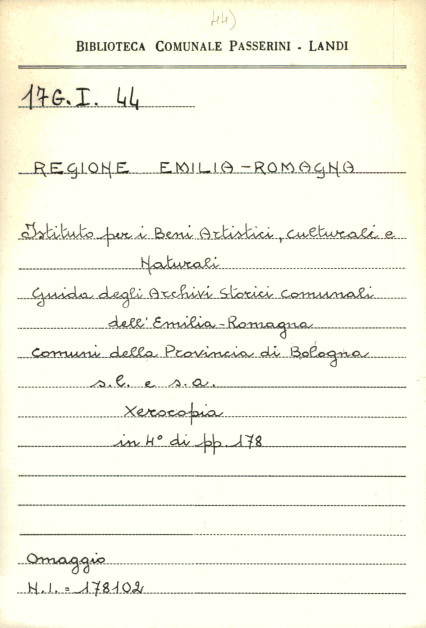 44)
BIBLIOTECA COMUNALE PASSERINI - LANDI
17G.I. 44
REGIONE EMILIA-ROMAGNA
Istituto per i Beni Artistici, culturali e
Naturali
Guida degli Archivi Storici comunali
dell'Emilia-Romagna
comuni della Provincia di Bologna
s.l. e s.a.
Xerocopia
in 4° di pp. 178
Omaggio
N.I. = 178102